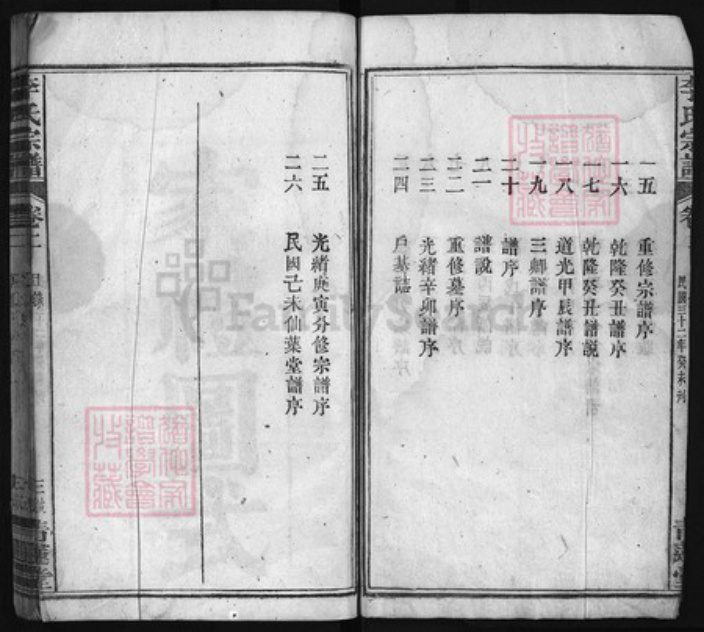 李氏宗譜
民國三十二年癸未刊
一五 重修宗譜序
一六 乾隆癸丑譜序
一七 乾隆癸丑譜説
一八 道光甲辰譜序
一九 三卿譜序
二十 譜序
二一 譜説
二二 重修墓序
二三 光緒辛卯譜序
二四 戶墓誌
二五 光緒庚寅分修宗譜序
二六 民國己未仙葉堂譜序
李氏宗譜
卷一
目錄
青蓮堂
FamilySearch